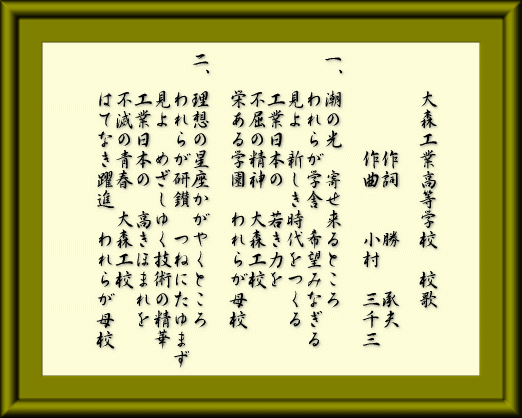 大森工業高等学校　校歌
作詞　勝　承夫
作曲　小村　三千三
一、潮の光　寄せ来るところ
われらが学舎　希望みなぎる
見よ　新しき時代をつくる
工業日本の　若き力を
不屈の精神　大森工校
栄ある学園　われらが母校
二、理想の星座かがやくところ
われらが研鑚　つねにたゆまず
見よ　めざしゆく技術の精華
工業日本の　高きほまれを
不滅の青春　大森工校
はてなき躍進　われらが母校